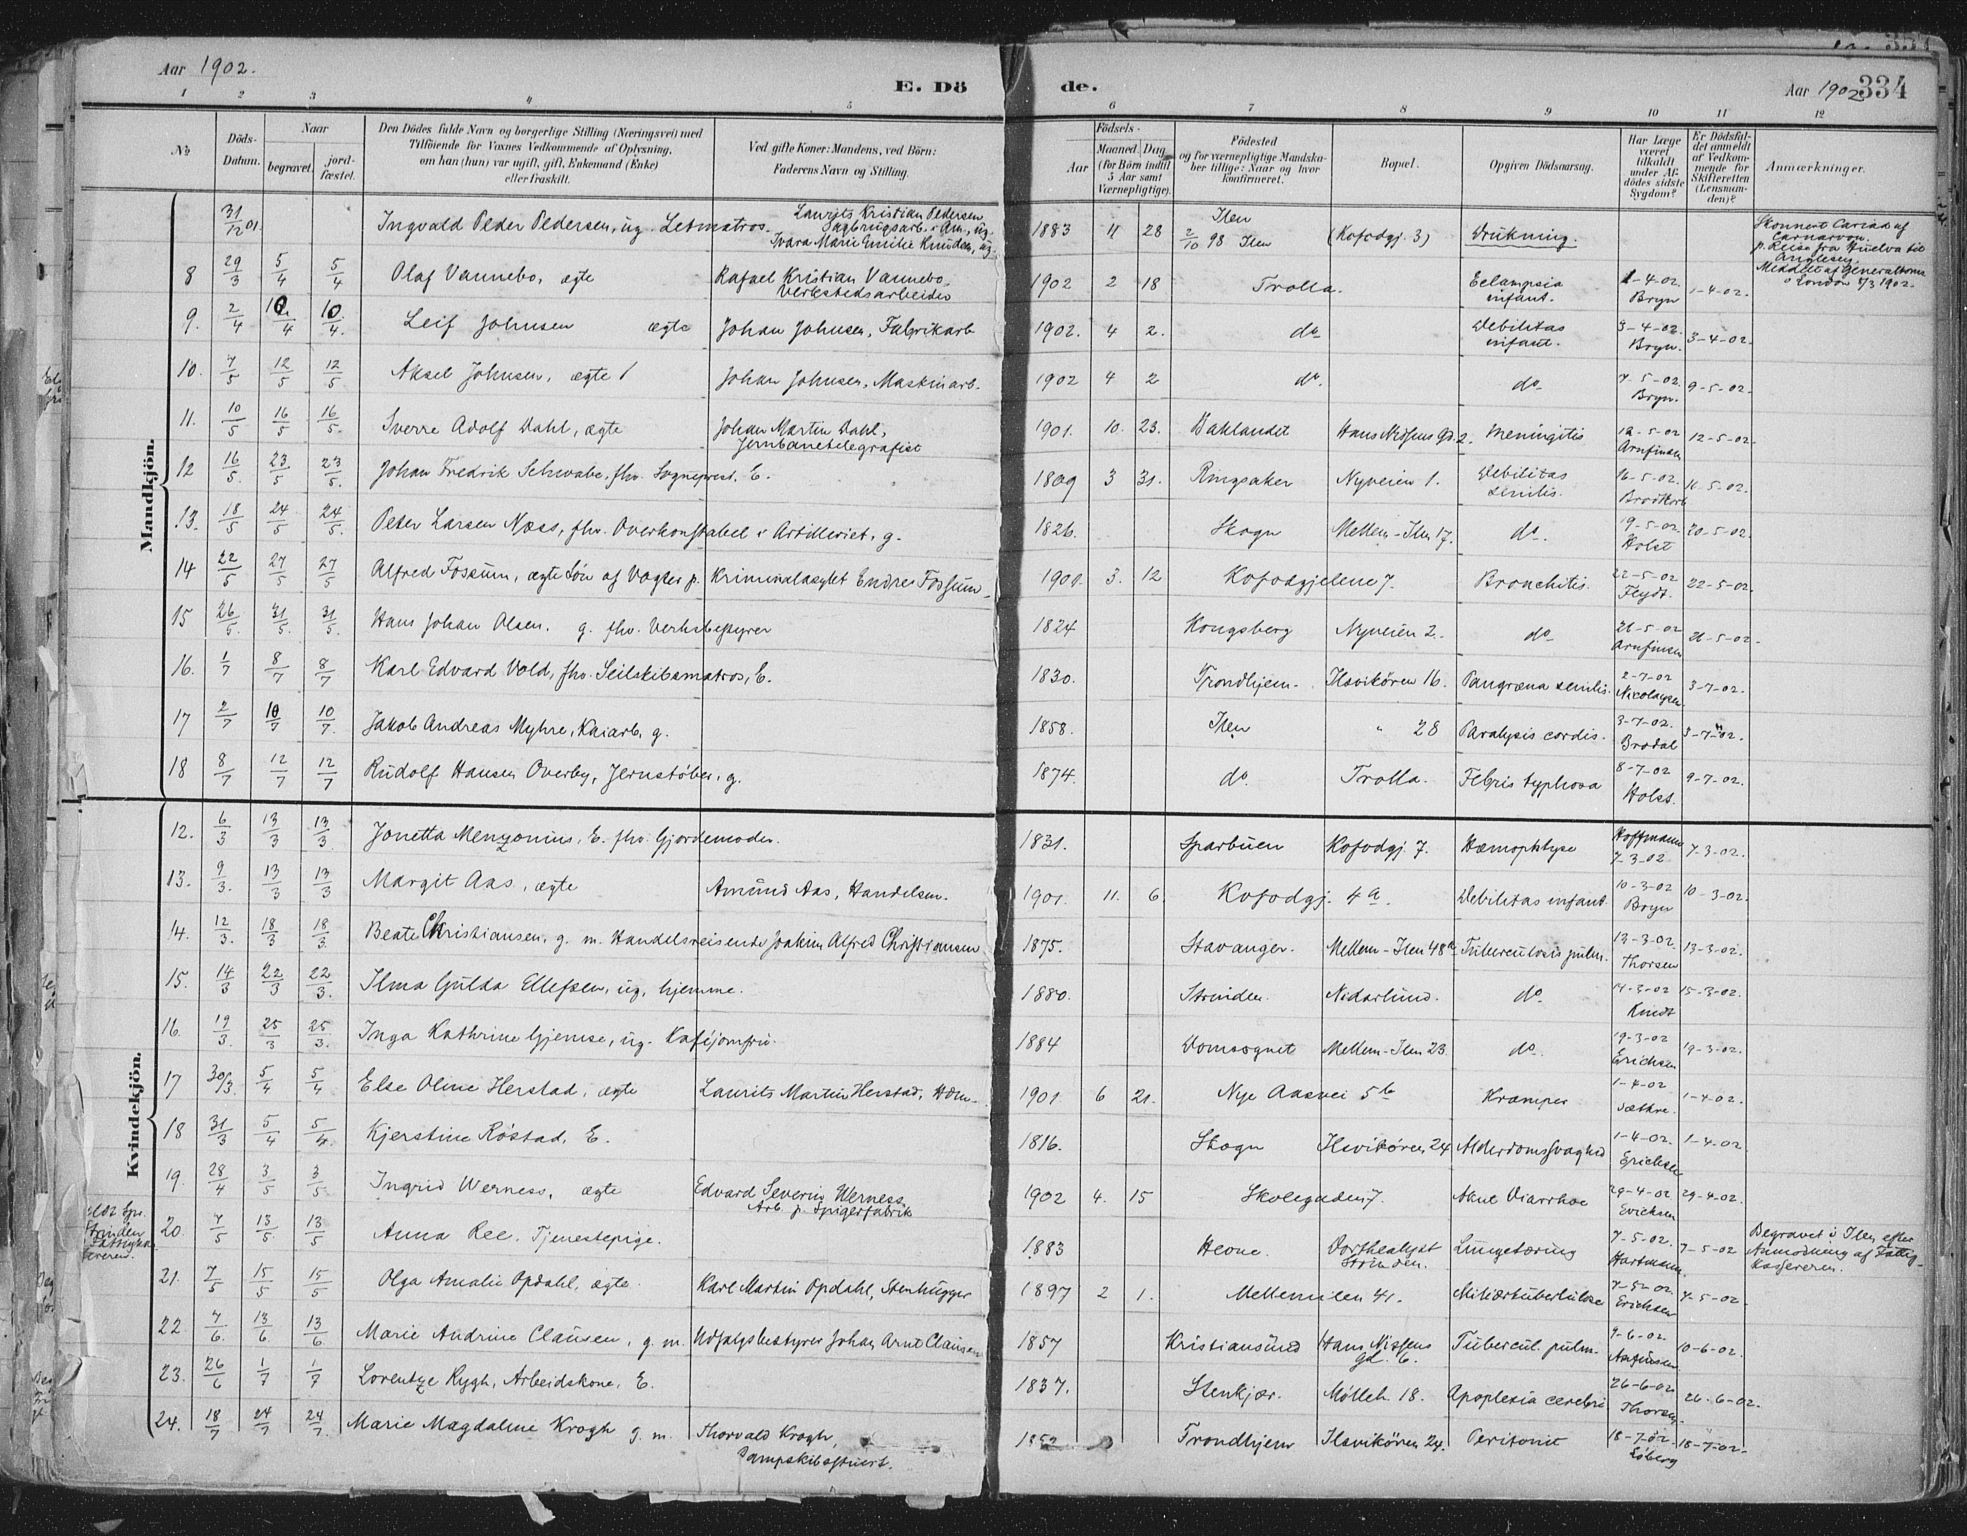 Aar 1902.
E. Dö de.
Aar 1902
334
1 2 3 4 5 6 7 8 9 10 11 12
No
Döds-Datum.
Naar
begravet.
jordfæstet.
Den Dödes fulde Navn og borgerlige Stilling (Næringsvei) med
Tilföiende for Voxnes Vedkommende af Oplysning,
om han (hun) var ugift, gift, Enkemand (Enke)
eller fraskilt.
Ved gifte Koner: Mandens, ved Börn:
Faderens Navn og Stilling.
Födsels-
Aar
Maaned. Dag
(for Börn indtil
5 Aar samt
Værnepligtige).
Födested
og for værnepligtige Mandskaber tillige: Naar og hvor
konfirmeret.
Bopæl.
Opgiven Dödsaarsag.
Har Læge
været
tilkaldt
under Afdödes sidste
Sygdom?
Er Dödsfaldet anmeldt
af Vedkommende for
Skifteretten
(Lensmanden)?
Anmærkninger.
Mandkjön.
31/12 01. Ingvald Peder Pedersen, ug. Letmatros. Laurits Kristian Pedersen Sagbrugsarb. i Am., ug. Ivara Marie Emilie Knudsen, ug. 1883 4 28 Ilen 2/10 98 Ilen (Kofodgj. 3) Drukning. Skonnert Cariad af Carnarvon. p. Reise fra Huelva til Anglesey. Meddelt af Generalkons. i London 1/3 1902.
8 29/3 5/4 5/4 Olaf Vannebo, ægte Rafael Kristian Vannebo, Verkstedsarbeider 1902 2 18 Trolla. Eclampsia infant. 1-4-02. Bryn 1-4-02.
9. 2/4 10/4 10/4. Leif Johnsen ægte Johan Johnsen, Fabrikarb 1902. 4 2. do Debilitas infant. 3-4-02. Bryn. 3-4-02.
10. 7/5 12/5 12/5 Aksel Johnsen, ægte Johan Johnsen, Maskinarb. 1902 4 2 do. do 7-5-02. Bryn. 9-5-02.
11. 10/5 16/5 16/5. Sverre Adolf Dahl, ægte Johan Martin Dahl, Jernbanetelegrafist 1901. 10. 23. Baklandet Hans Nissens Gd. 2. Meningitis 12-5-02 Arnfinsen 12-5-02.
12 16/5. 23/5 23/5. Johan Fredrik Schwabe, fhv. Sogneprest. E. 1809 3 31. Ringsaker Nyveien 1. Debilitas senilis. 16-5-02. 16-5-02.
13. 18/5 24/5 24/5. Peter Larsen Næss, fhv. Overkonstabel i Artilleriet, g. 1826. Skogn Mellem-Ilen 17. do. 19-5-02. Holst 20-5-02.
14 22/5 27/5 27/5 Alfred Fossum, ægte Søn af Vogter p. Kriminalasylet Endre Fossum. 1901. 3. 12 Kofodgjelene 7. Bronchitis. 22-5-02 Flydt. 22-5-02.
15 26/5. 31/5. 31/5. Hans Johan Olsen. g. fhv. Verksbestyrer 1824 Kongsberg Nyveien 2. do 26-5-02 Arnfinsen 26-5-02.
16. 1/7 8/7 8/7 Karl Edvard Vold, fhv. Seilskibsmatros, E. 1830. Trondhjem. Ilsvikören 16. Gangræna senilis. 2-7-02 Nicolaysen 3-7-02.
17 2/7 10/7 10/7. Jakob Andreas Myhre, Kaiarb, g. 1858. Ilen " 28 Paralysis cordis. 3-7-02. Brodal 3-7-02.
18 8/7 12/7 12/7 Rudolf Hansen Overby, Jernstøber, g. 1874. do. Trolla. Febris typhosa 8-7-02 Holst. 9-7-02.
Kvindekjön.
12. 6/3 13/3 13/3 Jonetta Menzonius, E. fhv. Gjordemoder. 1831. Sparbuen Kofodgj. 7. Hæmoptyse Hoffmann 7-3-02 7-3-02.
13. 9/3. 13/3 13/3 Margit Aas, ægte Amund Aas, Handelsm. 1901. 11. 6. Kofodgj. 4a. Debilitas infant. 10-3-02 Bryn 10-3-02.
14. 12/3. 18/3 18/3 Beate Christiansen, g. m. Handelsreisende Joakim Alfred Christiansen 1875. Stavanger. Mellem-Ilen 48a Tuberculosis pulm. 13-3-02. Thorsen 13-3-02.
15. 14/3 22/3 22/3. Ilma Gulda Ellefsen, ug, hjemme. 1880. Strinden. Nidarlund. do 14-3-02 Kindt 15-3-02.
16. 19/3. 25/3 25/3. Inga Kathrine Gjemse, ug. Kaféjomfru. 1884 Domsognet Mellem-Ilen 23 do. 19-3-02 Erichsen 19-3-02.
17 30/3 5/4 5/4 Else Oline Herstad, ægte Laurits Martin Herstad, Hdm. 1901 6 21. Nye Aasvei 5b Kramper 1-4-02 Sæthre. 1-4-02.
18 31/3 5/4 5/4. Kjerstine Røstad, E. 1816. Skogn Ilsvikören 24 Alderdomssvaghed 1-4-02. Erichsen 1-4-02.
19. 28/4 3/5 3/5. Ingrid Werness, ægte Edvard Severin Werness, Arb. p. Spigerfabrik 1902 4. 15 Skolegaden 7. Akut Diarrhoe 29-4-02 Erichsen 29-4-02.
Strinden
20. 7/5 13/5. 13/5 Anna Ree. Tjenestepige. 1883 Hevne. Dorthealyst Strinden. Lungetæring 7-5-02. Hartmann. 7-5-02 Begravet i Ilen efter Anmodning af Fattigkassereren.
21. 7/5 15/5 15/5 Olga Amalie Opdahl, ægte. Karl Martin Opdahl, Stenhugger 1897 2 1. Mellemilen 41. Miliærtuberkulose 7-5-02. Erichsen 7-5-02.
22. 7/6. 13/6 13/6 Marie Andrine Clausen, g. m. Udsalgsbestyrer Johan Arnt Clausen 1857 Kristiansund Hans Nissens Gd. 6. Tubercul. pulm. 9-6-02. Arnfinsen 10-6-02.
23. 26/6 1/7 1/7 Lorentze Rygh, Arbeidskone, E. 1837. Stenkjær. Mölleb. 18. Apoplexia cerebri 26-6-02 Thorsen. 26-6-02.
24. 18/7 24/7 24/7. Marie Magdalene Krogh g. m. Thorvald Krogh, Dampskibsstuert. 1852 Trondhjem Ilsvikören 24. Peritonit 18-7-02. Söberg 18-7-02.